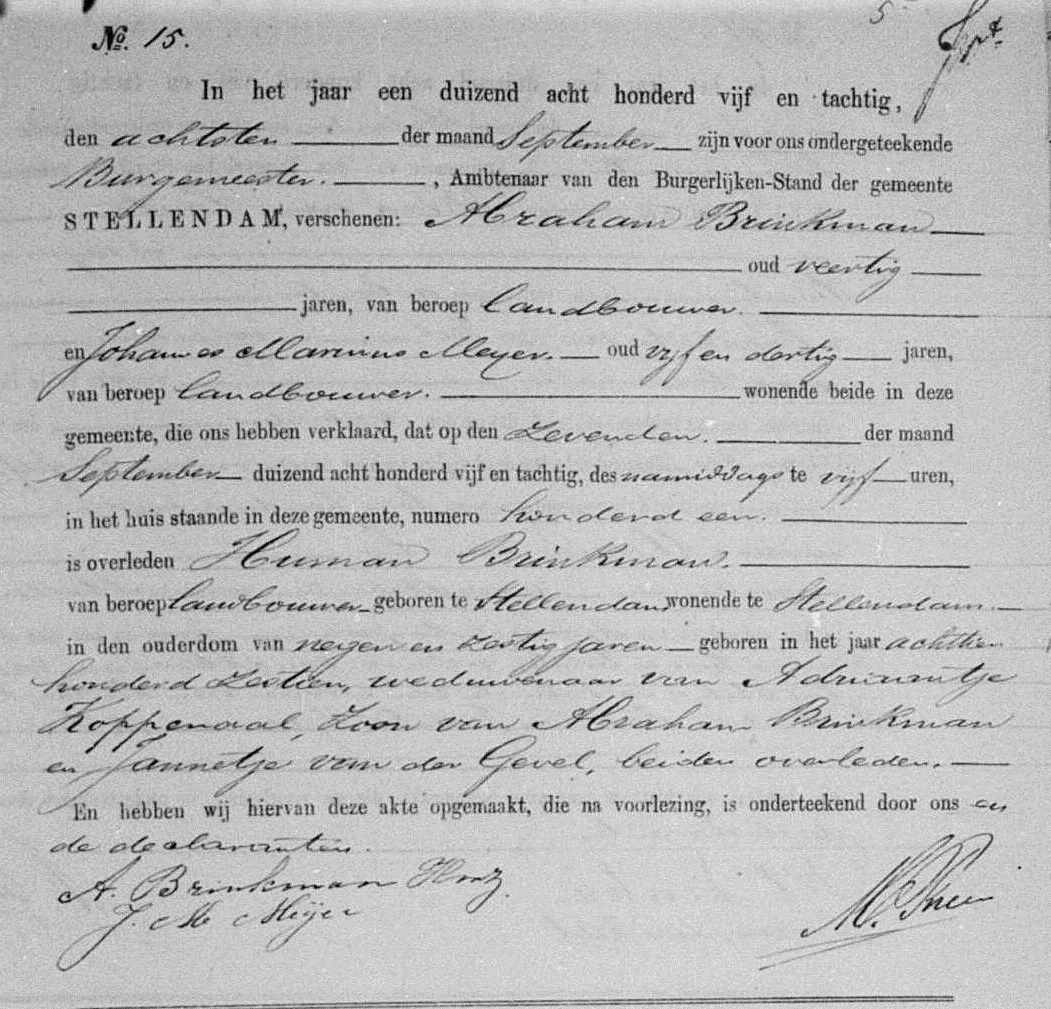 No. 15.
5
In het jaar een duizend acht honderd vijf en tachtig,
den achtsten der maand September zijn voor ons ondergeteekende
Burgemeester. , Ambtenaar van den Burgerlijken-Stand der gemeente
STELLENDAM, verschenen: Abraham Brinkman
oud veertig
jaren, van beroep landbouwer.
en Johannes Marinus Meyer. oud vijf en dertig jaren,
van beroep landbouwer. wonende beide in deze
gemeente, die ons hebben verklaard, dat op den zevenden. der maand
September duizend acht honderd vijf en tachtig, des namiddags te vijf uren,
in het huis staande in deze gemeente, numero honderd een.
is overleden Human Brinkman.
van beroep landbouwer geboren te Stellendam wonende te Stellendam.
in den ouderdom van negen en zestig jaren geboren in het jaar achttien
honderd zestien, weduwenaar van Adriaantje
Koppenaal, zoon van Abraham Brinkman
en Jannetje van der Gevel, beiden overleden.
En hebben wij hiervan deze akte opgemaakt, die na voorlezing, is onderteekend door ons en
de declaranten.
A. Brinkman Hmz.
J. M Meijer